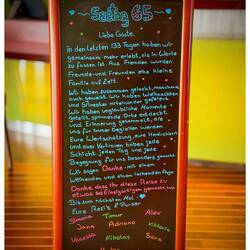 Seetag 65
Liebe Gäste,
in den letzten 133 Tagen haben wir
gemeinsam mehr erlebt, als in Worte
zu fassen ist. Aus Fremden wurden
Freunde und Freunden eine kleine
Familie auf Zeit.
Wir haben zusammen gelacht, manchmal
auch geweint. Wir haben Weihnachten
und Silvester miteinander gefeiert.
Wir haben unglaubliche Momente
geteilt, spannende Orte entdeckt
und Erinnerung gesammelt, die
uns für immer begleiten werden.
Eure Wertschätzung, eure Herzlichkeit
und euer Vertrauen haben jede
Schicht, jeden Tag und jede
Begegnung für uns besonders gemacht.
Wir sagen Danke - mit einem
weinenden und einem lachenden Auge.
Danke, dass ihr diese Reise zu
etwas so Einzigartigem gemacht habt
Bis zum nächsten Mal -
Eure Rezi's & Purser
Simone Timur Alex
Jana Adriana Viktoria
Vanessa Nikolas Sara